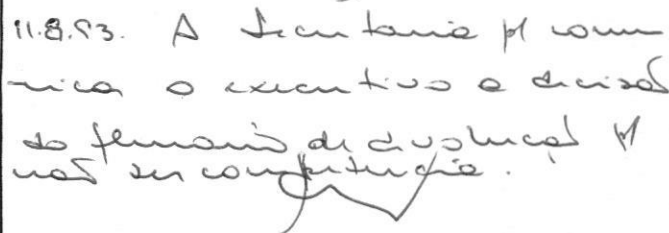 11.8.93. A Secretaria p/ comu-
nicar o executivo a decisão
do plenário de devolução p/
não ser competência.